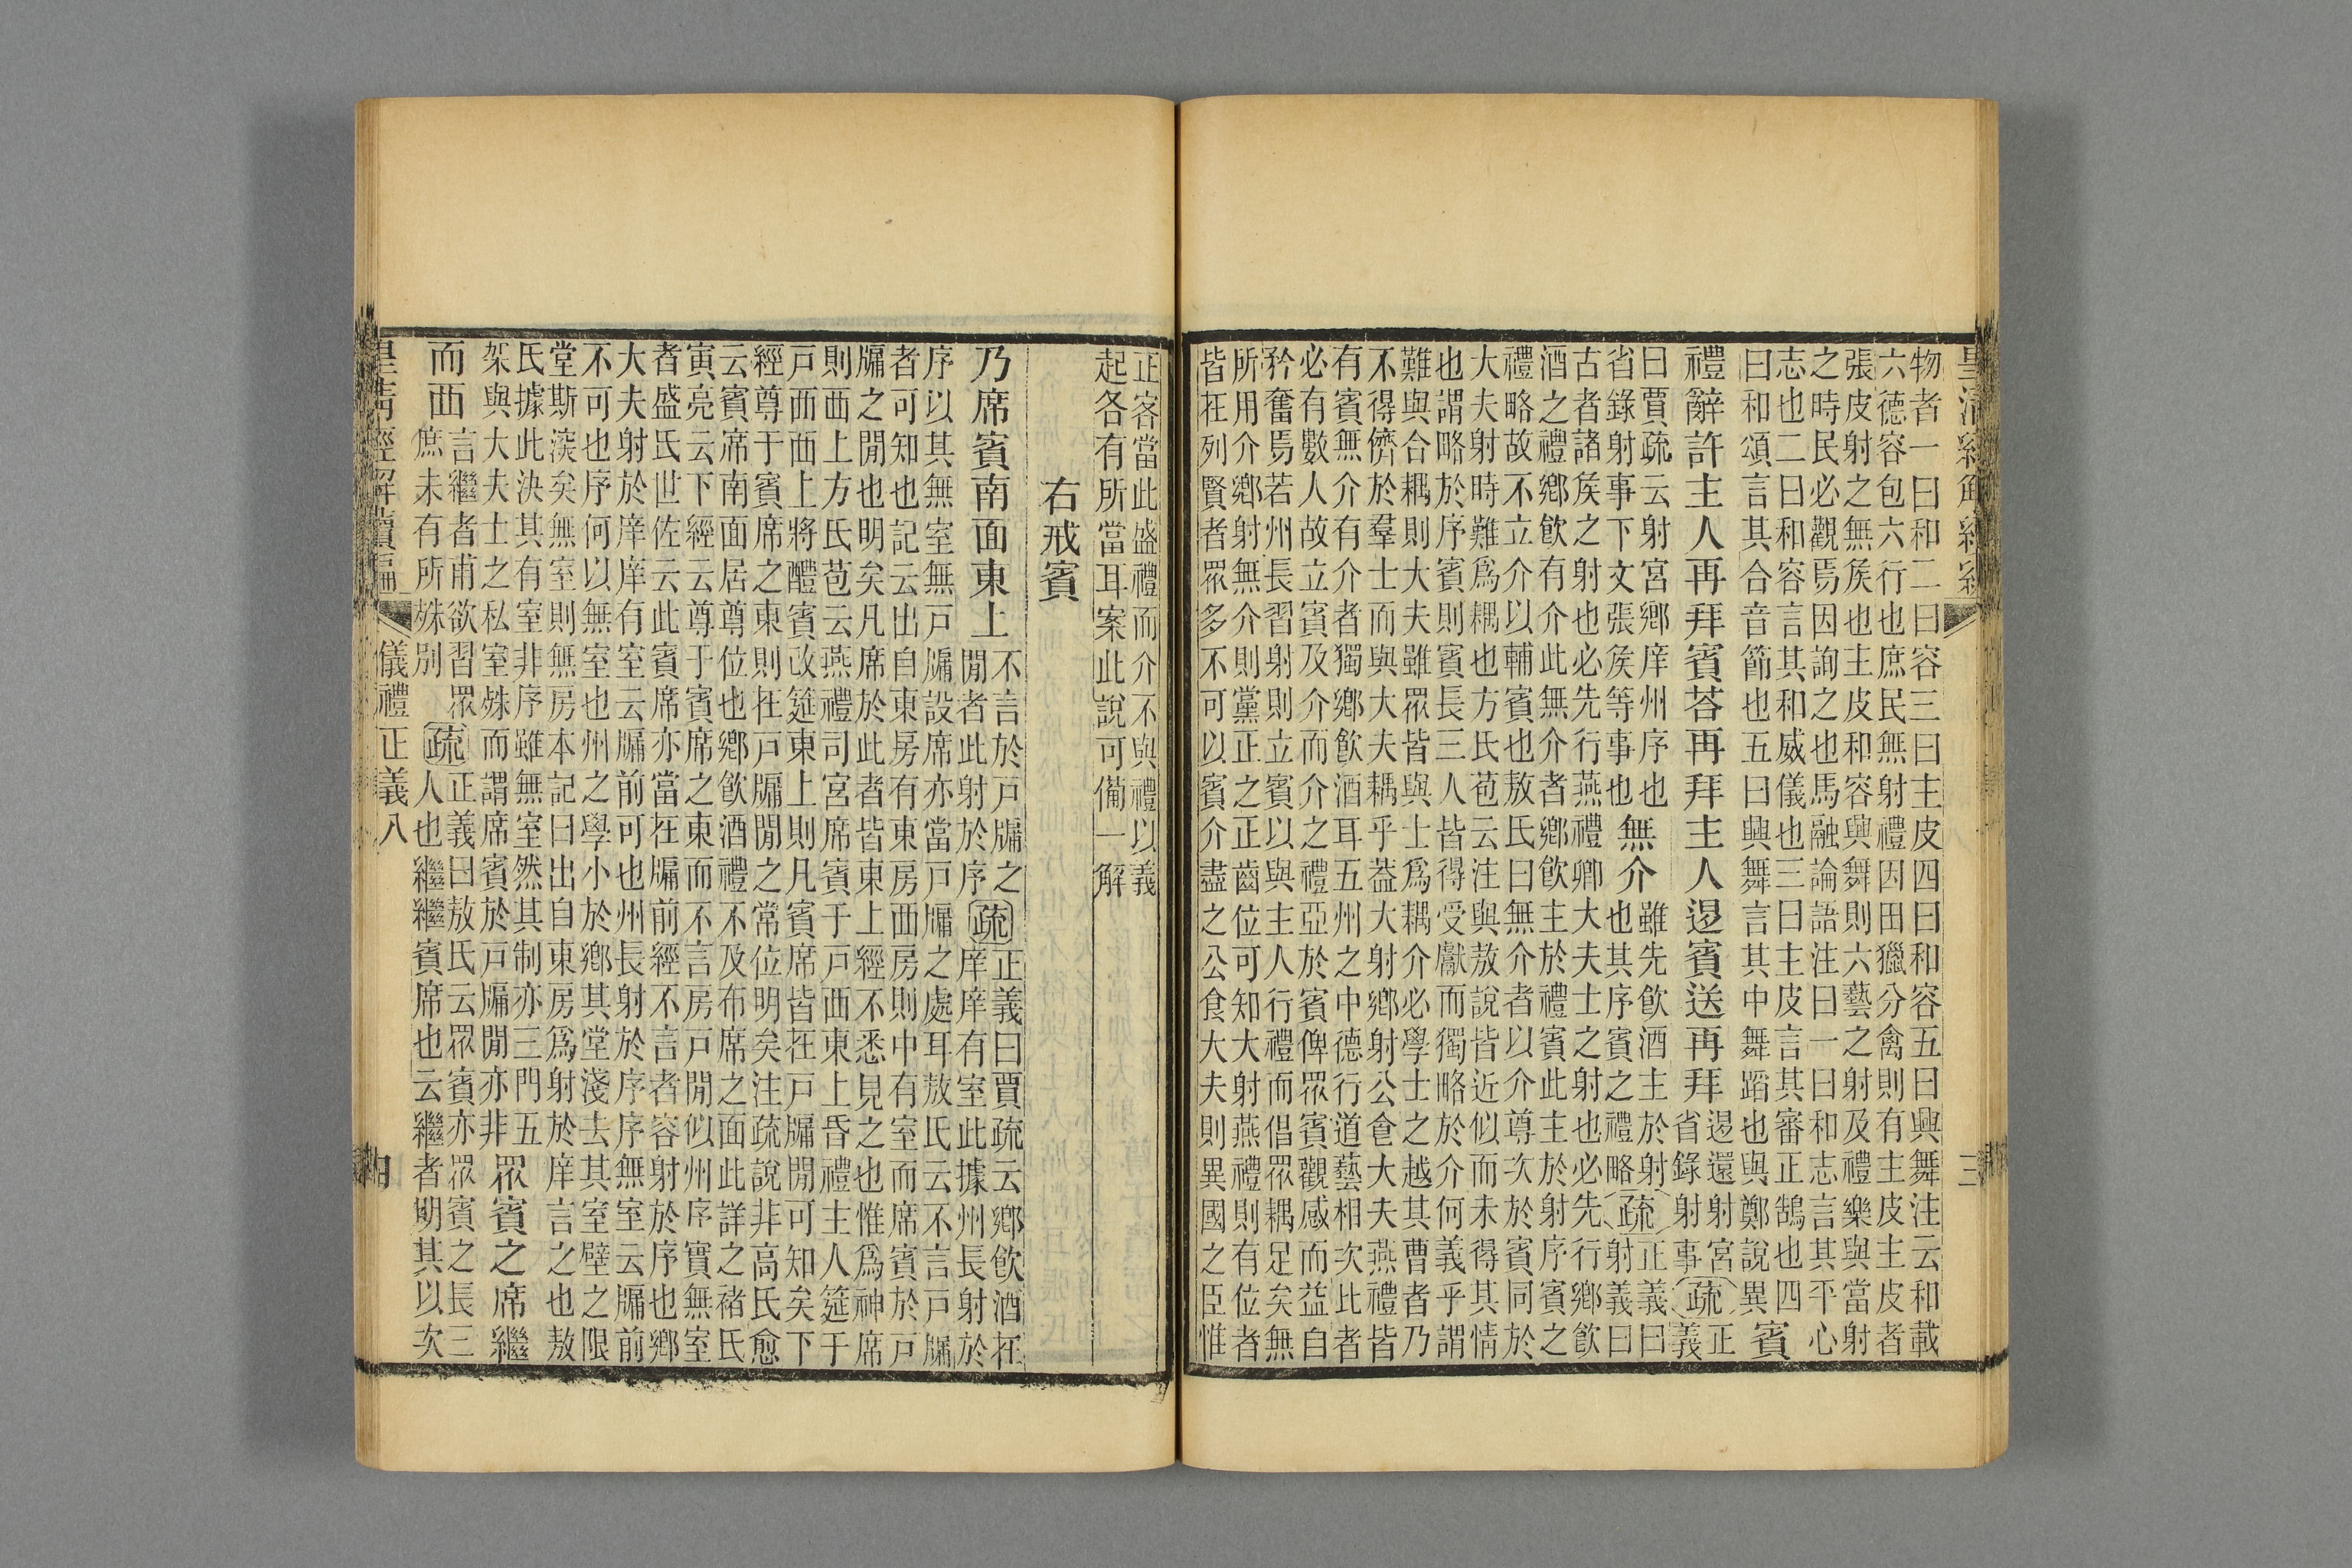 皇清經解續編
三
物者一曰和二曰容三曰主皮四曰和容五曰興舞注云和載
六德容包六行也庶民無射禮因田獵分禽則有主皮主皮者
張皮射之無矦也主皮和容興舞則六藝之射及禮樂與當射
之時民必觀焉因詢之也馬融論語注曰一曰和志言其平心
志也二曰和容言其和威儀也三曰主皮言其審正鵠也四
曰和頌言其合音節也五曰興舞言其中舞蹈也與鄭說異
賓
禮辭許主人再拜賓荅再拜主人退賓送再拜
退還射宮
省錄射事
疏
正
義
曰賈疏云射宮鄉庠州序也
省錄射事下文張矦等事也
無介
雖先飲酒主於射
也其序賓之禮略
疏
正義曰
射義曰
古者諸矦之射也必先行燕禮卿大夫士之射也必先行鄉飲
酒之禮鄉飲有介此無介者鄉飲主於禮賓此主於射序賓之
禮略故不立介以輔賓也敖氏曰無介者以介尊次於賓同於
大夫射時難爲耦也方氏苞云注與敖說皆近似而未得其情
也謂略於序賓則賓長三人皆得受獻而獨略於介何義乎謂
難與合耦則大夫雖眾皆與士爲耦介必學士之越其曹者乃
不得儕於羣士而與大夫耦乎蓋大射鄉射公食大夫燕禮皆
有賓無介有介者獨鄉飲酒耳五州之中德行道藝相次此者
必有數人故立賓及介而介之禮亞於賓俾眾賓觀感而益自
矜奮焉若州長習射則立賓以與主人行禮而倡眾耦足矣無
所用介鄉射無介則黨正之正齒位可知大射燕禮則有位者
皆在列賢者眾多不可以賓介盡之公食大夫則異國之臣惟
正客當此盛禮而介不與禮以義
起各有所當耳案此說可備一解
右戒賓
乃席賓南面東上
不言於戶牖之
閒者此射於序
疏
正義曰賈疏云鄉飲酒在
庠庠有室此據州長射於
序以其無室無戶牖設席亦當戶牖之處耳敖氏云不言戶牖
者可知也記云出自東房有東房西房則中有室而席賓於戶
牖之閒也明矣凡席於此者皆東上經不悉見之也惟爲神席
則西上方氏苞云燕禮司宮席賓于戶西東上昏禮主人筵于
戶西西上將醴賓改筵東上則凡賓席皆在戶牖閒可知矣下
經尊于賓席之東則在戶牖閒之常位明矣注疏說非高氏愈
云賓席南面居尊位也鄉飲酒禮不及布席之面此詳之褚氏
寅亮云下經云尊于賓席之東而不言房戶閒似州序實無室
者盛氏世佐云此賓席亦當在牖前經不言者容射於序也鄉
大夫射於庠庠有室云牖前可也州長射於序序無室云牖前
不可也序何以無室也州之學小於鄉其堂淺去其室壁之限
堂斯深矣無室則無房本記曰出自東房爲射於庠言之也敖
氏據此決其有室非序雖無室然其制亦三門五
架與大夫士之私室殊而謂席賓於戶牖閒亦非
眾賓之席繼
而西
言繼者甫欲習眾
庶未有所殊別
疏
正義曰敖氏云眾賓亦眾賓之長三
人也繼繼賓席也云繼者明其以次
皇清經解續編
儀禮正義八
四